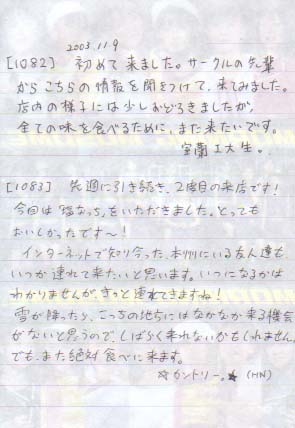 2003.11.9
[1082] 初めて来ました。サークルの先輩
からこちらの情報を聞きつけて、来てみました。
店内の様子には少しおどろきましたが、
全ての味を食べるために、また来たいです。
室蘭工大生。
[1083] 先週に引き続き、2度目の来店です!
今回は をいただきました。とっても
おいしかったです〜!
インターネットで知り合った、本州にいる友人達も
いつか連れて来たいと思います。いつになるかは
わかりませんが、きっと連れてきますね!
雪が降ったら、こっちの地ちにはなかなか来る機会
がないと思うので、しばらく来れないかもしれません。
でも、また絶対食べに来ます。
☆カントリー。★ (HN)